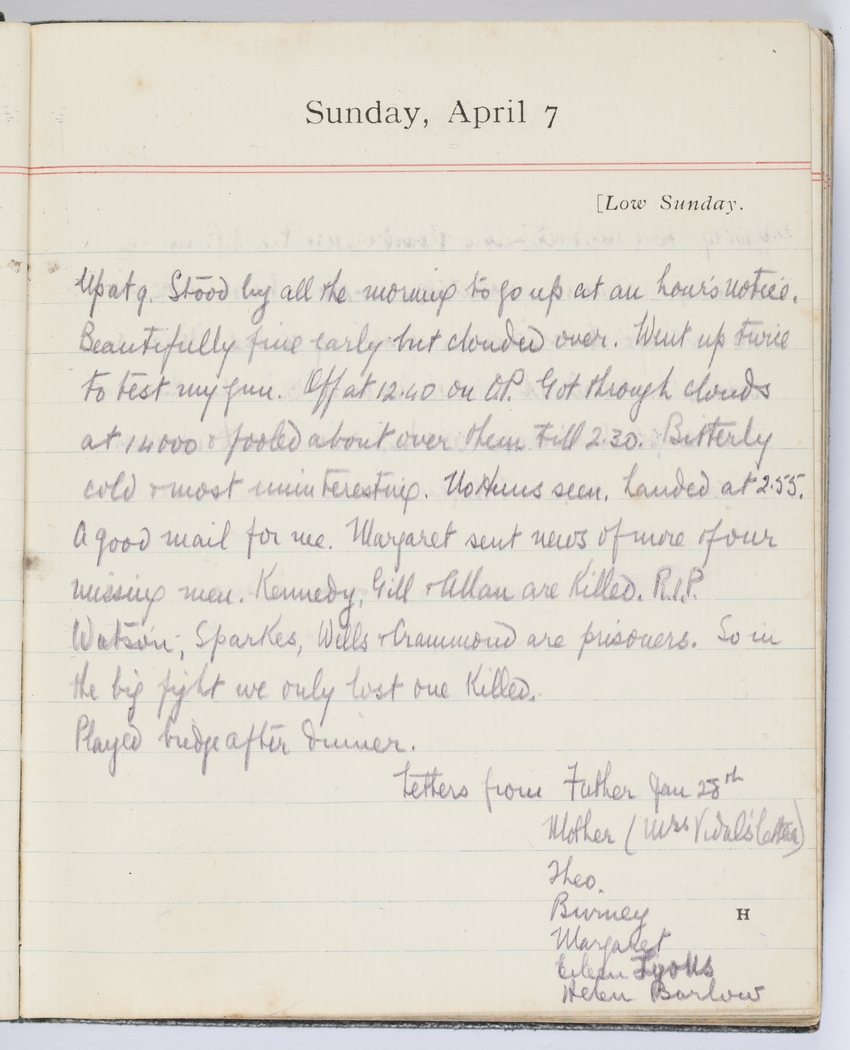 Sunday, April 7
[Low Sunday.
Up at 9. Stood by all the morning to go up at an hour's notice.
Beautifully fine early but clouded over. Went up twice
to test my gun. Off at 12.40 on O.P. Got through clouds
at 14000 & fooled about over them till 2.30. Bitterly
cold & most uninteresting. No Huns seen. Landed at 2.55.
A good mail for me. Margaret sent news of more of our
missing men. Kennedy, Gill & Allan are killed. R.I.P.
Watson, Sparkes, Wells & Crammond are prisoners. So in
the big fight we only lost one killed.
Played bridge after dinner.
Letters from Father Jan 28th
Mother (Mrs Vidal's letter)
Theo.
Burney
Margaret
Eileen Lyons
Helen Barlow
H